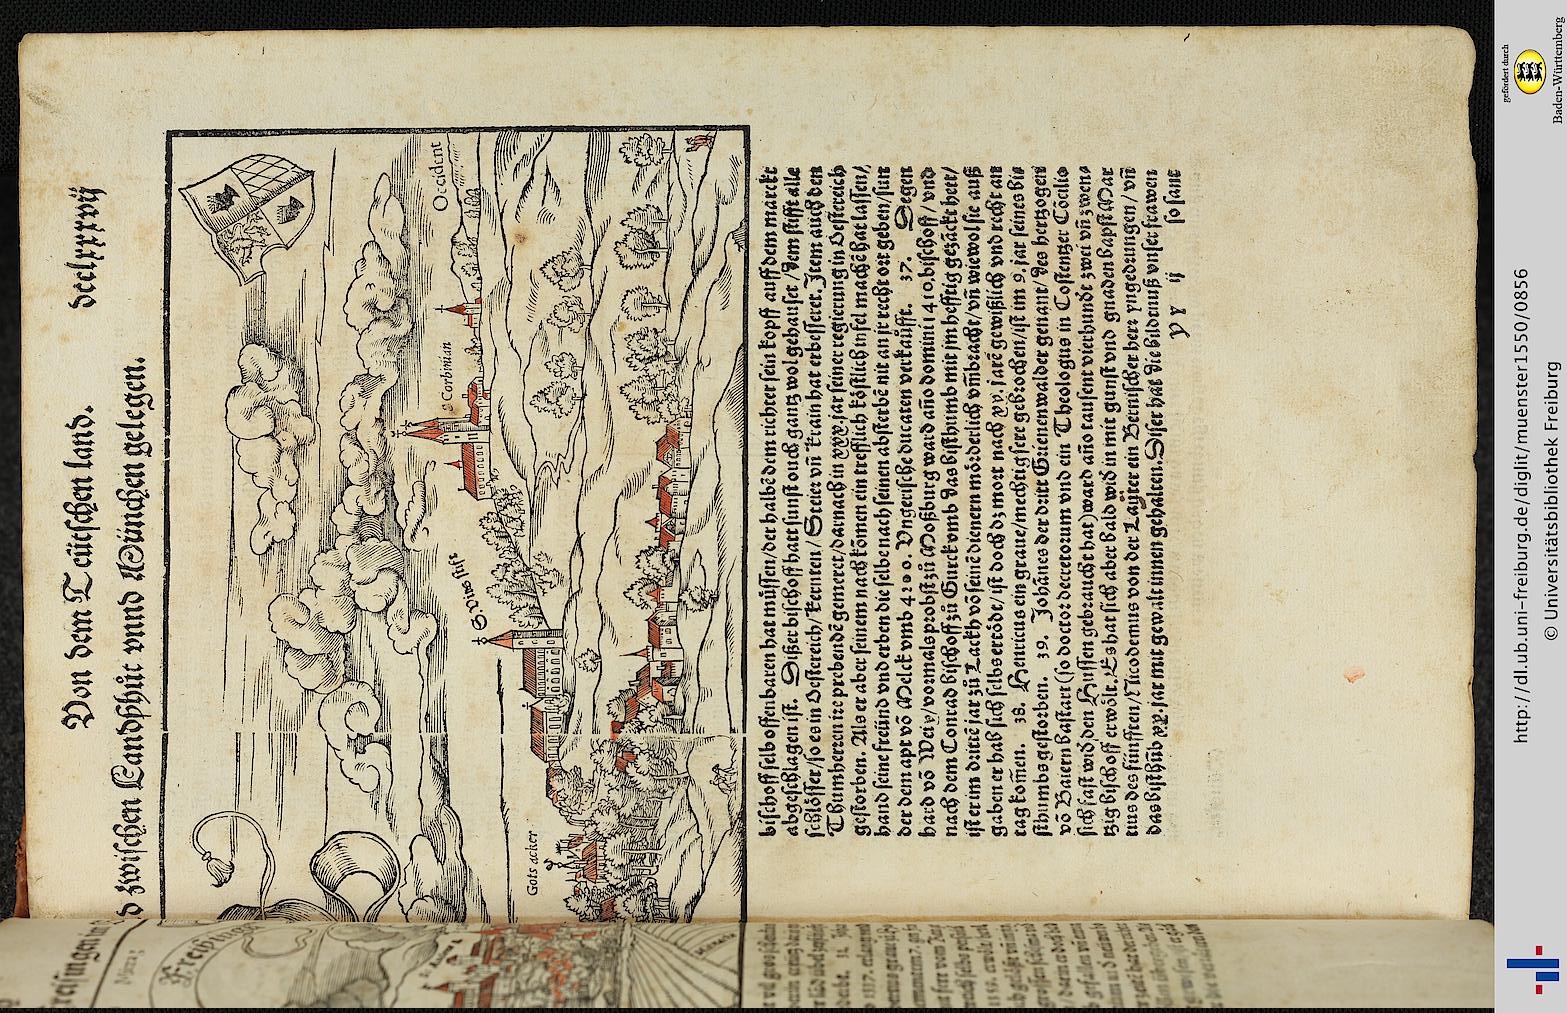 Von dem Teütschen land. dcclxxxvij
d zwischen Landßhůt vnnd München gelegen.
Occident
S Corbinian
S. Vitus stifft
Gots acker
bischoff selb offenbaren hat müssen / der halbē dem richter sein kopff auff dem marckt
abgeschlagen ist. Dißer bischoff hatt sunst ouch gantz wol gehauset / dem stifft alle
schlösser / so es in Oestereich / Kernten / Steier vñ Krain hat erbesseret. Item auch den
Thumherren ire prebendē gemeret / darnach in xxx. jar seiner regierung in Oestereich
gestorben. Als er aber seinem nach kōmen ein trefflich köstlich infel machē hat lassen /
hand seine freünd vnd erben die selbe nach seinen absterbē nit an ir recht ort geben / sun
der dem apt vō Melck vmb 4200. Vngerische ducaten verkaufft. 37. Degen
hard vō Weix / vormals probst zů Moßburg ward año domini 1410. bischoff / vnd
nach dem Conrad bischoff zů Gurck vmb das bisthumb mit im hefftig gezäckt hett /
ist er im dritte jar zů Lack vō seinē dienern mörderlich vmbracht / vñ wiewol sie auß
gaben er hab sich selbs ertödt / ist doch dz mort nach xv. jarē gewißlich vnd recht an
tag komen. 38. Henricus ein graue / mechtig sere gebrochen / ist im 9. jar seines bis
sthumbs gestorben. 39. Johānes der dritt Grienenwalder genant / des hertzogen
vō Baiern bastart (so doctor decretorum vnd ein Theologus in Costentzer Cōcilio
sich fast wid den Hussen gebraucht hat) ward año tausent vierhundt zwei vñ zwens
tzig bischoff erwölt. Es hat sich aber bald wid in mit gunst vnd gnaden bapst Mar
tins des fünfften / Nicodemus von der Layter ein Bernischer herr yngedrungen / vñ
das bisthūb xx. jar mit gewalt innen gehalten. Diser hat die bildtnuß vnser frawen
Yy ij so sant
Freisingen im
Freisinge
gefördert durch
Baden-Württemberg
http://dl.ub.uni-freiburg.de/diglit/muenster1550/0856
© Universitätsbibliothek Freiburg